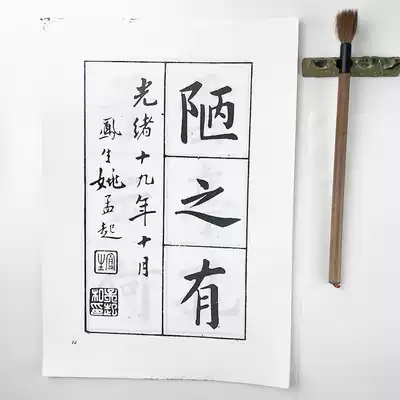 陋之有
光緒十九年十月
鳳生姚孟起